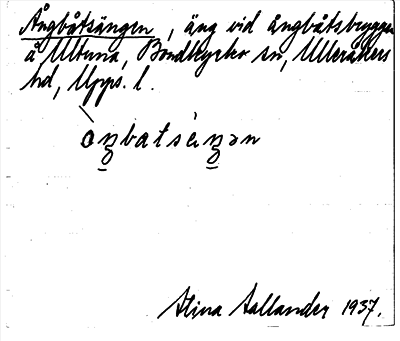 Ångbåtsängen, äng vid ångbåtsbryggan
å Ultuna, Bondkyrko sn, Ulleråkers
hd, Upps. l.
Stina Sallander 1937.